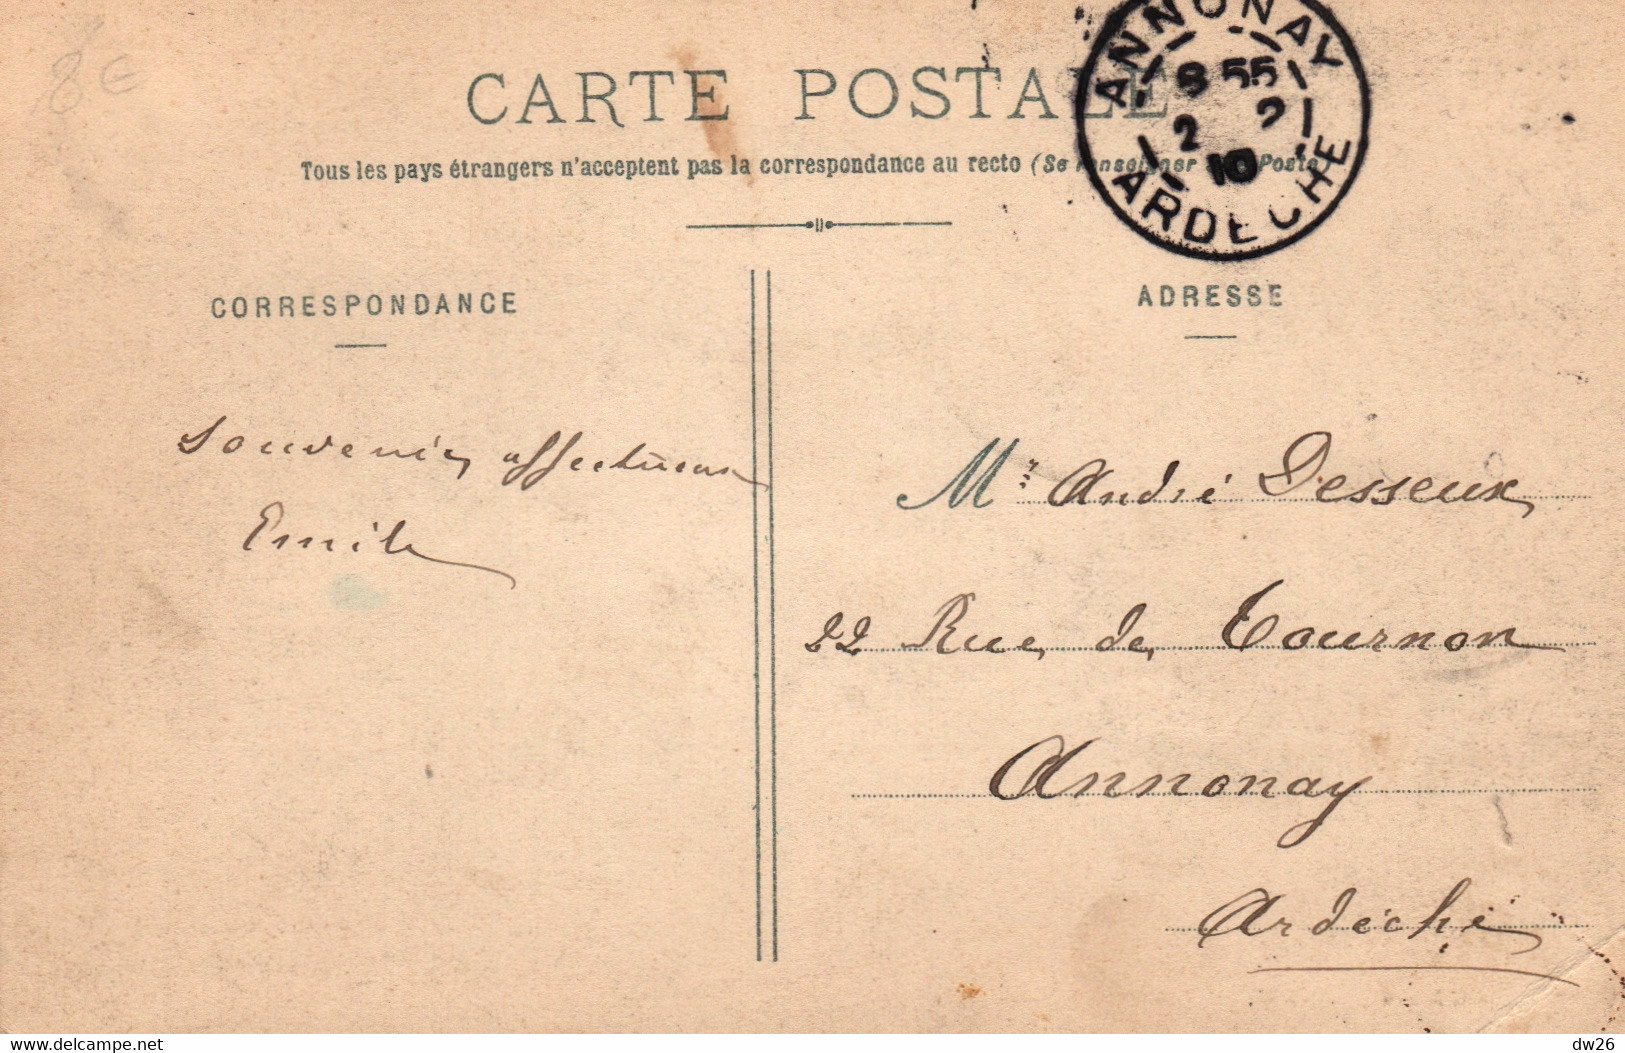 8€
CARTE POSTALE
Tous les pays étrangers n'acceptent pas la correspondance au recto (Se renseigner à la Poste)
ANNONAY
8 55
2 2
10
ARDECHE
CORRESPONDANCE
ADRESSE
Souvenir affectueux
Emile
Mr André Desseux
22 Rue de Tournon
Annonay
Ardèche
delcampe.net
dw26